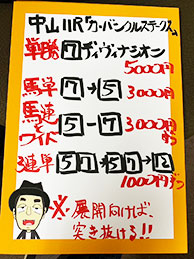 中山11R「カーバンクルステークス」
単勝 7 ディヴィナシオン
5000円
馬単 7→5 3000円
馬連とワイド 5-7 3000円ずつ
3連単 5 7→5 7→12
1000円ずつ
※展開向けば、
突き抜ける!!